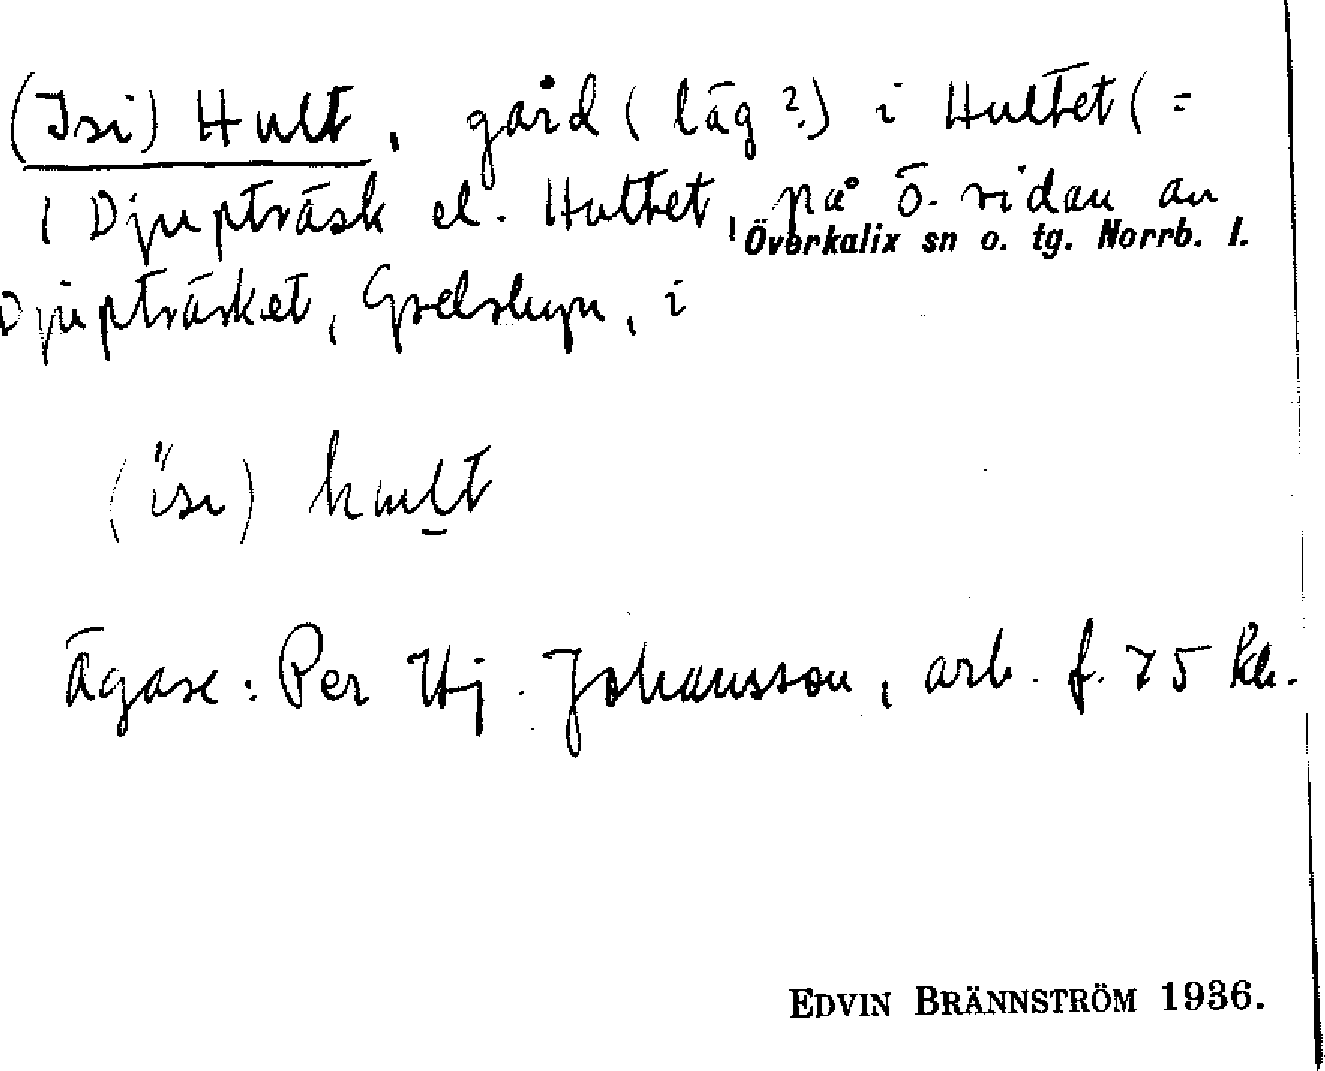 (Isi) Hult, gård (läg?) i Hultet (=
i Djupträsk el. Hultet, på ö. sidan av
Överkalix sn o. tg. Norrb. l.
Djupträsket, Gyelskyn, i
(ïsı) hult
Ägare: Per Hj. Johansson, arb. f. 75 kr.
EDVIN BRÄNNSTRÖM 1936.